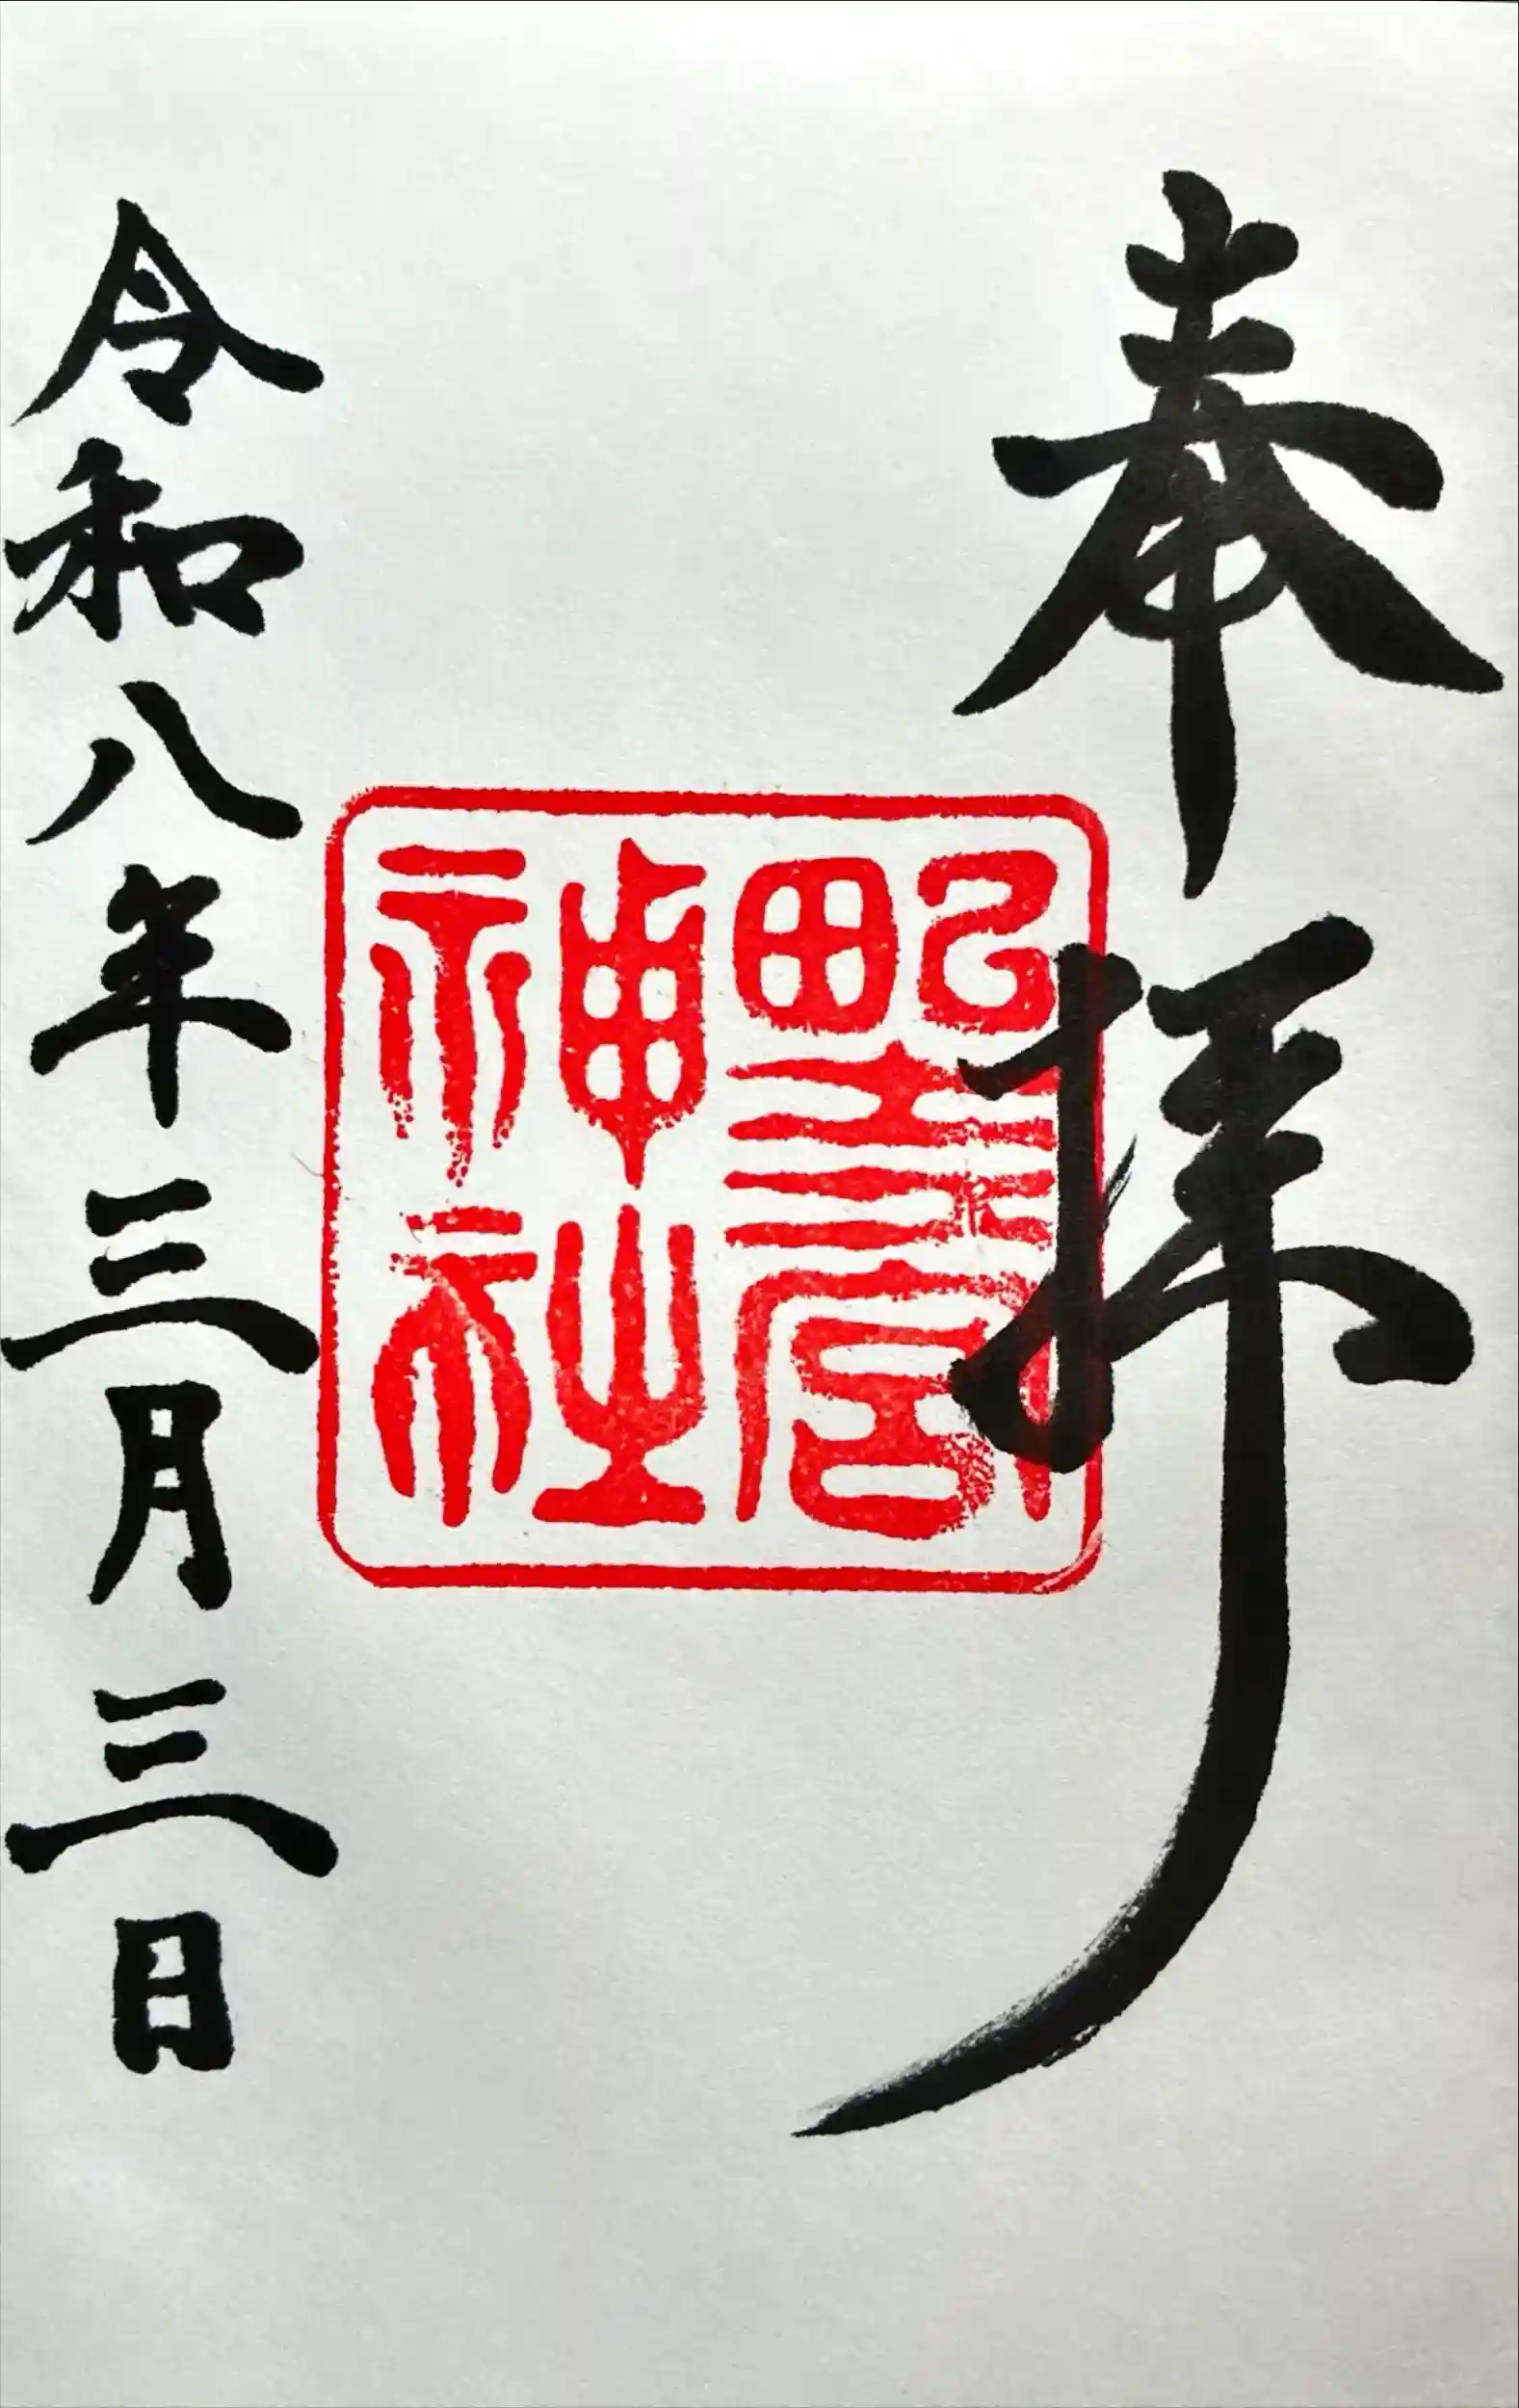 奉拝
宮
神社
令和八年三月三日